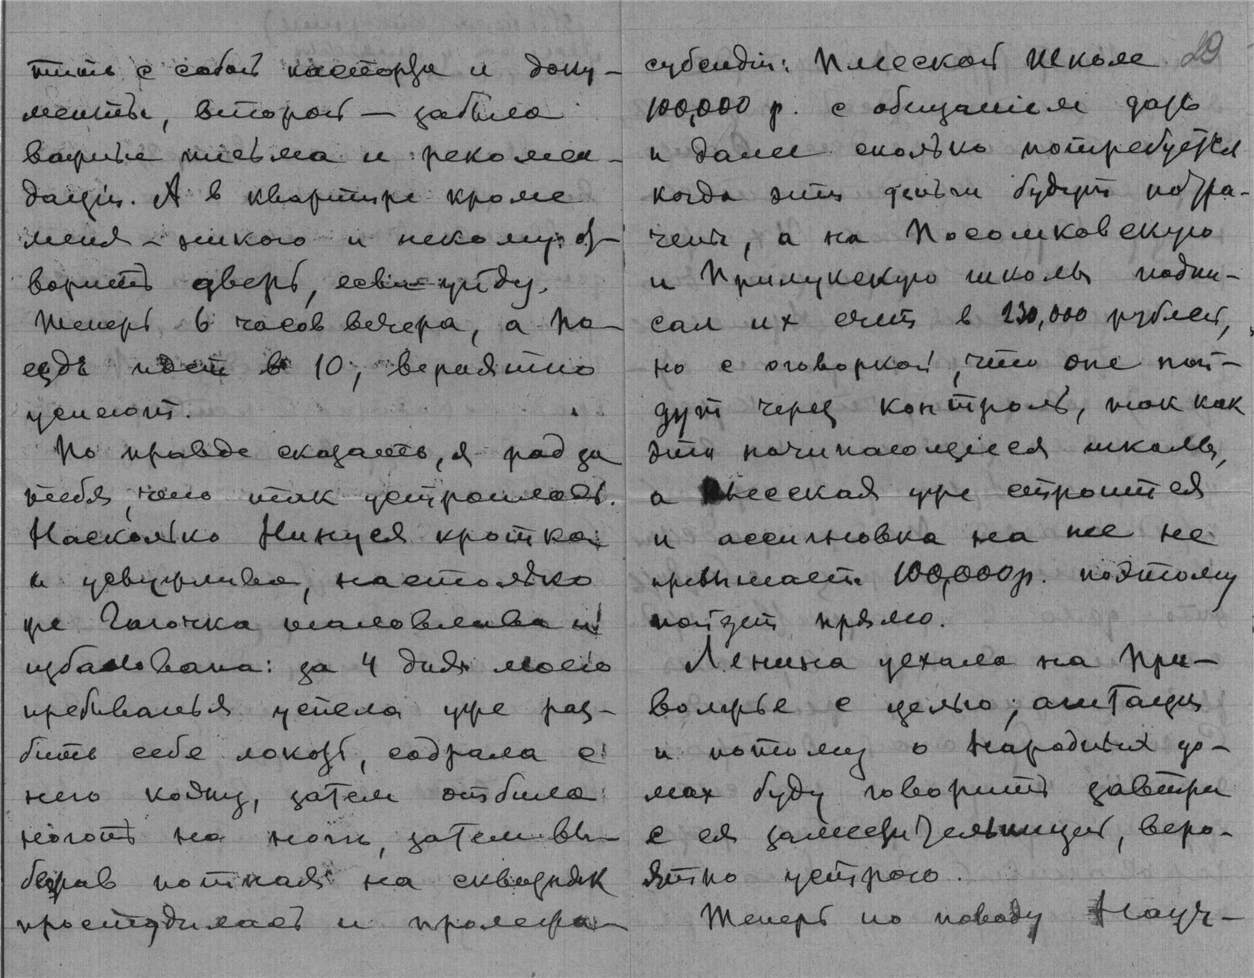 тить с собой паспорта и доку-
менты, второй — забыла
важные письма и рекомен-
дации. А в квартире кроме
меня — никого и некому от-
ворить дверь, если уйду.
Теперь 6 часов вечера, а по-
ездъ идет в 10, вероятно
успеют.
По правде сказать, я рад за
тебя, что так устроилось.
Насколько Нинуся кротка
и усидчива, настолько
же Галочка шаловлива и
избалована: за 4 дня моего
пребыванья успела уже раз-
бить себе локоть, содрала с
него кожу, затем отбила
ноготь на ноге, затем вы-
бежав потная на сквозняк
простудилась и пролежа-
29
субсидіи: Плесской школе
100,000 р. с обещаніем дать
и далее сколько потребуется
когда эти деньги будут потра-
чены, а на Посошковскую
и Прилукскую школы подпи-
сал их смет в 230,000 рублей,
но с оговоркой, что оне пой-
дут через контроль, так как
это начинающіеся школы,
а Плесская уже строится
и ассигновка на нее не
превышает 100,000 р. поэтому
пойдет прямо.
Ленина уехала на При-
волжье с целью агитации
и потому о Народных до-
мах буду говорить завтра
с ея заместительницей, веро-
ятно устрою.
Теперь по поводу Науч-